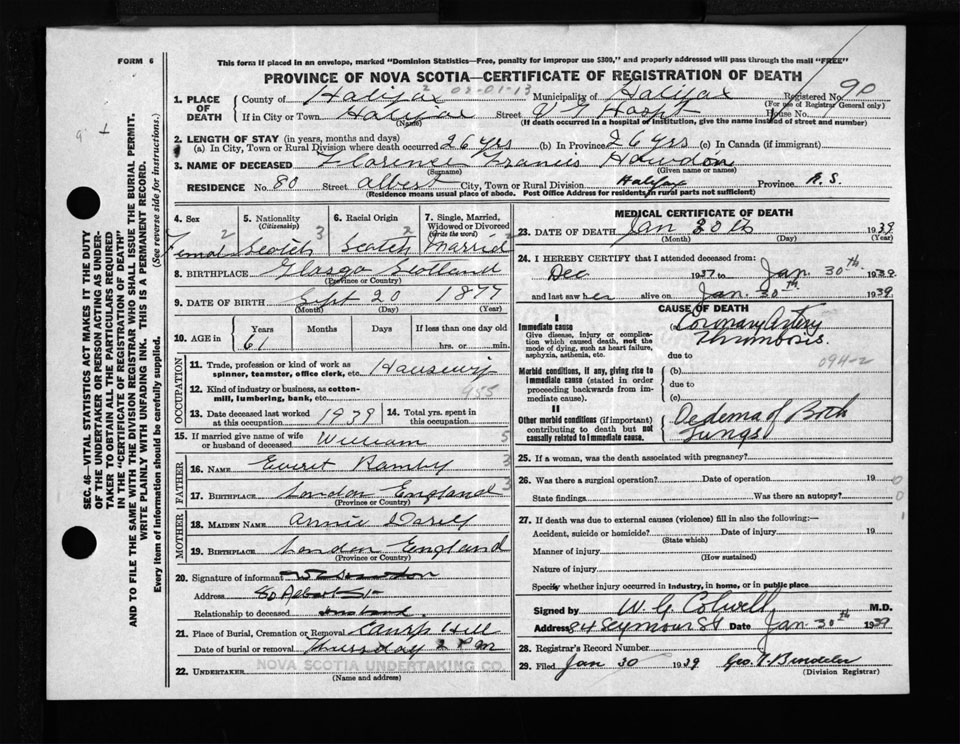 FORM 6
This form if placed in an envelope, marked "Dominion Statistics—Free, penalty for improper use $300," and properly addressed will pass through the mail "FREE"
PROVINCE OF NOVA SCOTIA—CERTIFICATE OF REGISTRATION OF DEATH
SEC. 46—VITAL STATISTICS ACT MAKES IT THE DUTY
OF THE UNDERTAKER OR PERSON ACTING AS UNDER-
TAKER TO OBTAIN ALL THE PARTICULARS REQUIRED
IN THE "CERTIFICATE OF REGISTRATION OF DEATH"
AND TO FILE THE SAME WITH THE DIVISION REGISTRAR WHO SHALL ISSUE THE BURIAL PERMIT.
WRITE PLAINLY WITH UNFADING INK. THIS IS A PERMANENT RECORD.
Every item of information should be carefully supplied. (See reverse side for instructions.)
1. PLACE OF DEATH
County of Halifax 2 02-01-13 Municipality of Halifax Registered No. 90
(For use of Registrar General only)
If in City or Town Halifax Street V G Hospt House No.
(Name) (If death occurred in a hospital or institution, give the name instead of street and number)
2. LENGTH OF STAY (in years, months and days)
(a) In City, Town or Rural Division where death occurred 26 yrs (b) In Province 26 yrs (c) In Canada (if immigrant)
3. NAME OF DECEASED Florence Francis Howdon
(Surname) (Given name or names)
RESIDENCE No. 80 Street Albert City, Town or Rural Division Halifax Province N.S.
(Residence means usual place of abode. Post Office Address for residents in rural parts not sufficient)
4. Sex 5. Nationality (Citizenship) 6. Racial Origin 7. Single, Married, Widowed or Divorced (Write the word)
2 3 2 2
Female Scotch Scotch Married
8. BIRTHPLACE Glasgo Scotland
(Province or Country)
9. DATE OF BIRTH Sept 20 1877
(Month) (Day) (Year)
10. AGE in Years Months Days If less than one day old
61 hrs. or min.
OCCUPATION
11. Trade, profession or kind of work as
spinner, teamster, office clerk, etc. Housewife
12. Kind of industry or business, as cotton-
mill, lumbering, bank, etc. 955
13. Date deceased last worked
at this occupation 1939 14. Total yrs. spent in
this occupation
15. If married give name of wife
or husband of deceased William 5
FATHER
16. NAME Everit Ramby 3
17. BIRTHPLACE London England 3
(Province or Country)
MOTHER
18. MAIDEN NAME Annie
19. BIRTHPLACE London England
(Province or Country)
20. Signature of informant
Address 80 Albert St
Relationship to deceased husband
21. Place of Burial, Cremation or Removal Camp Hill
Date of burial or removal Thursday 2 PM
22. UNDERTAKER NOVA SCOTIA UNDERTAKING CO
(Name and address)
MEDICAL CERTIFICATE OF DEATH
23. DATE OF DEATH Jan 30th 1939
(Month) (Day) (Year)
24. I HEREBY CERTIFY that I attended deceased from:
Dec 1937 to Jan. 30th 1939
and last saw her alive on Jan. 30th 1939.
CAUSE OF DEATH
I
Immediate cause (a) Coronary Artery
Give disease, injury or complica-
tion which caused death, not the
mode of dying, such as heart failure,
asphyxia, asthenia, etc.
Thrombosis.
due to 094-2
Morbid conditions, if any, giving rise to
immediate cause (stated in order
proceeding backwards from im-
mediate cause).
(b)
due to
(c)
II
Other morbid conditions (if important)
contributing to death but not
causally related to immediate cause.
Oedema of Both
Lungs
25. If a woman, was the death associated with pregnancy?
26. Was there a surgical operation? Date of operation 19 0
State findings Was there an autopsy? 0
27. If death was due to external causes (violence) fill in also the following:—
Accident, suicide or homicide? Date of injury 19
(State which)
Manner of injury
(How sustained)
Nature of injury
Specify whether injury occurred in industry, in home, or in public place
Signed by W. G. Colwell M.D.
Address 84 Seymour St Date Jan. 30th 1939
28. Registrar's Record Number
29. Filed Jan 30 1939
(Division Registrar)